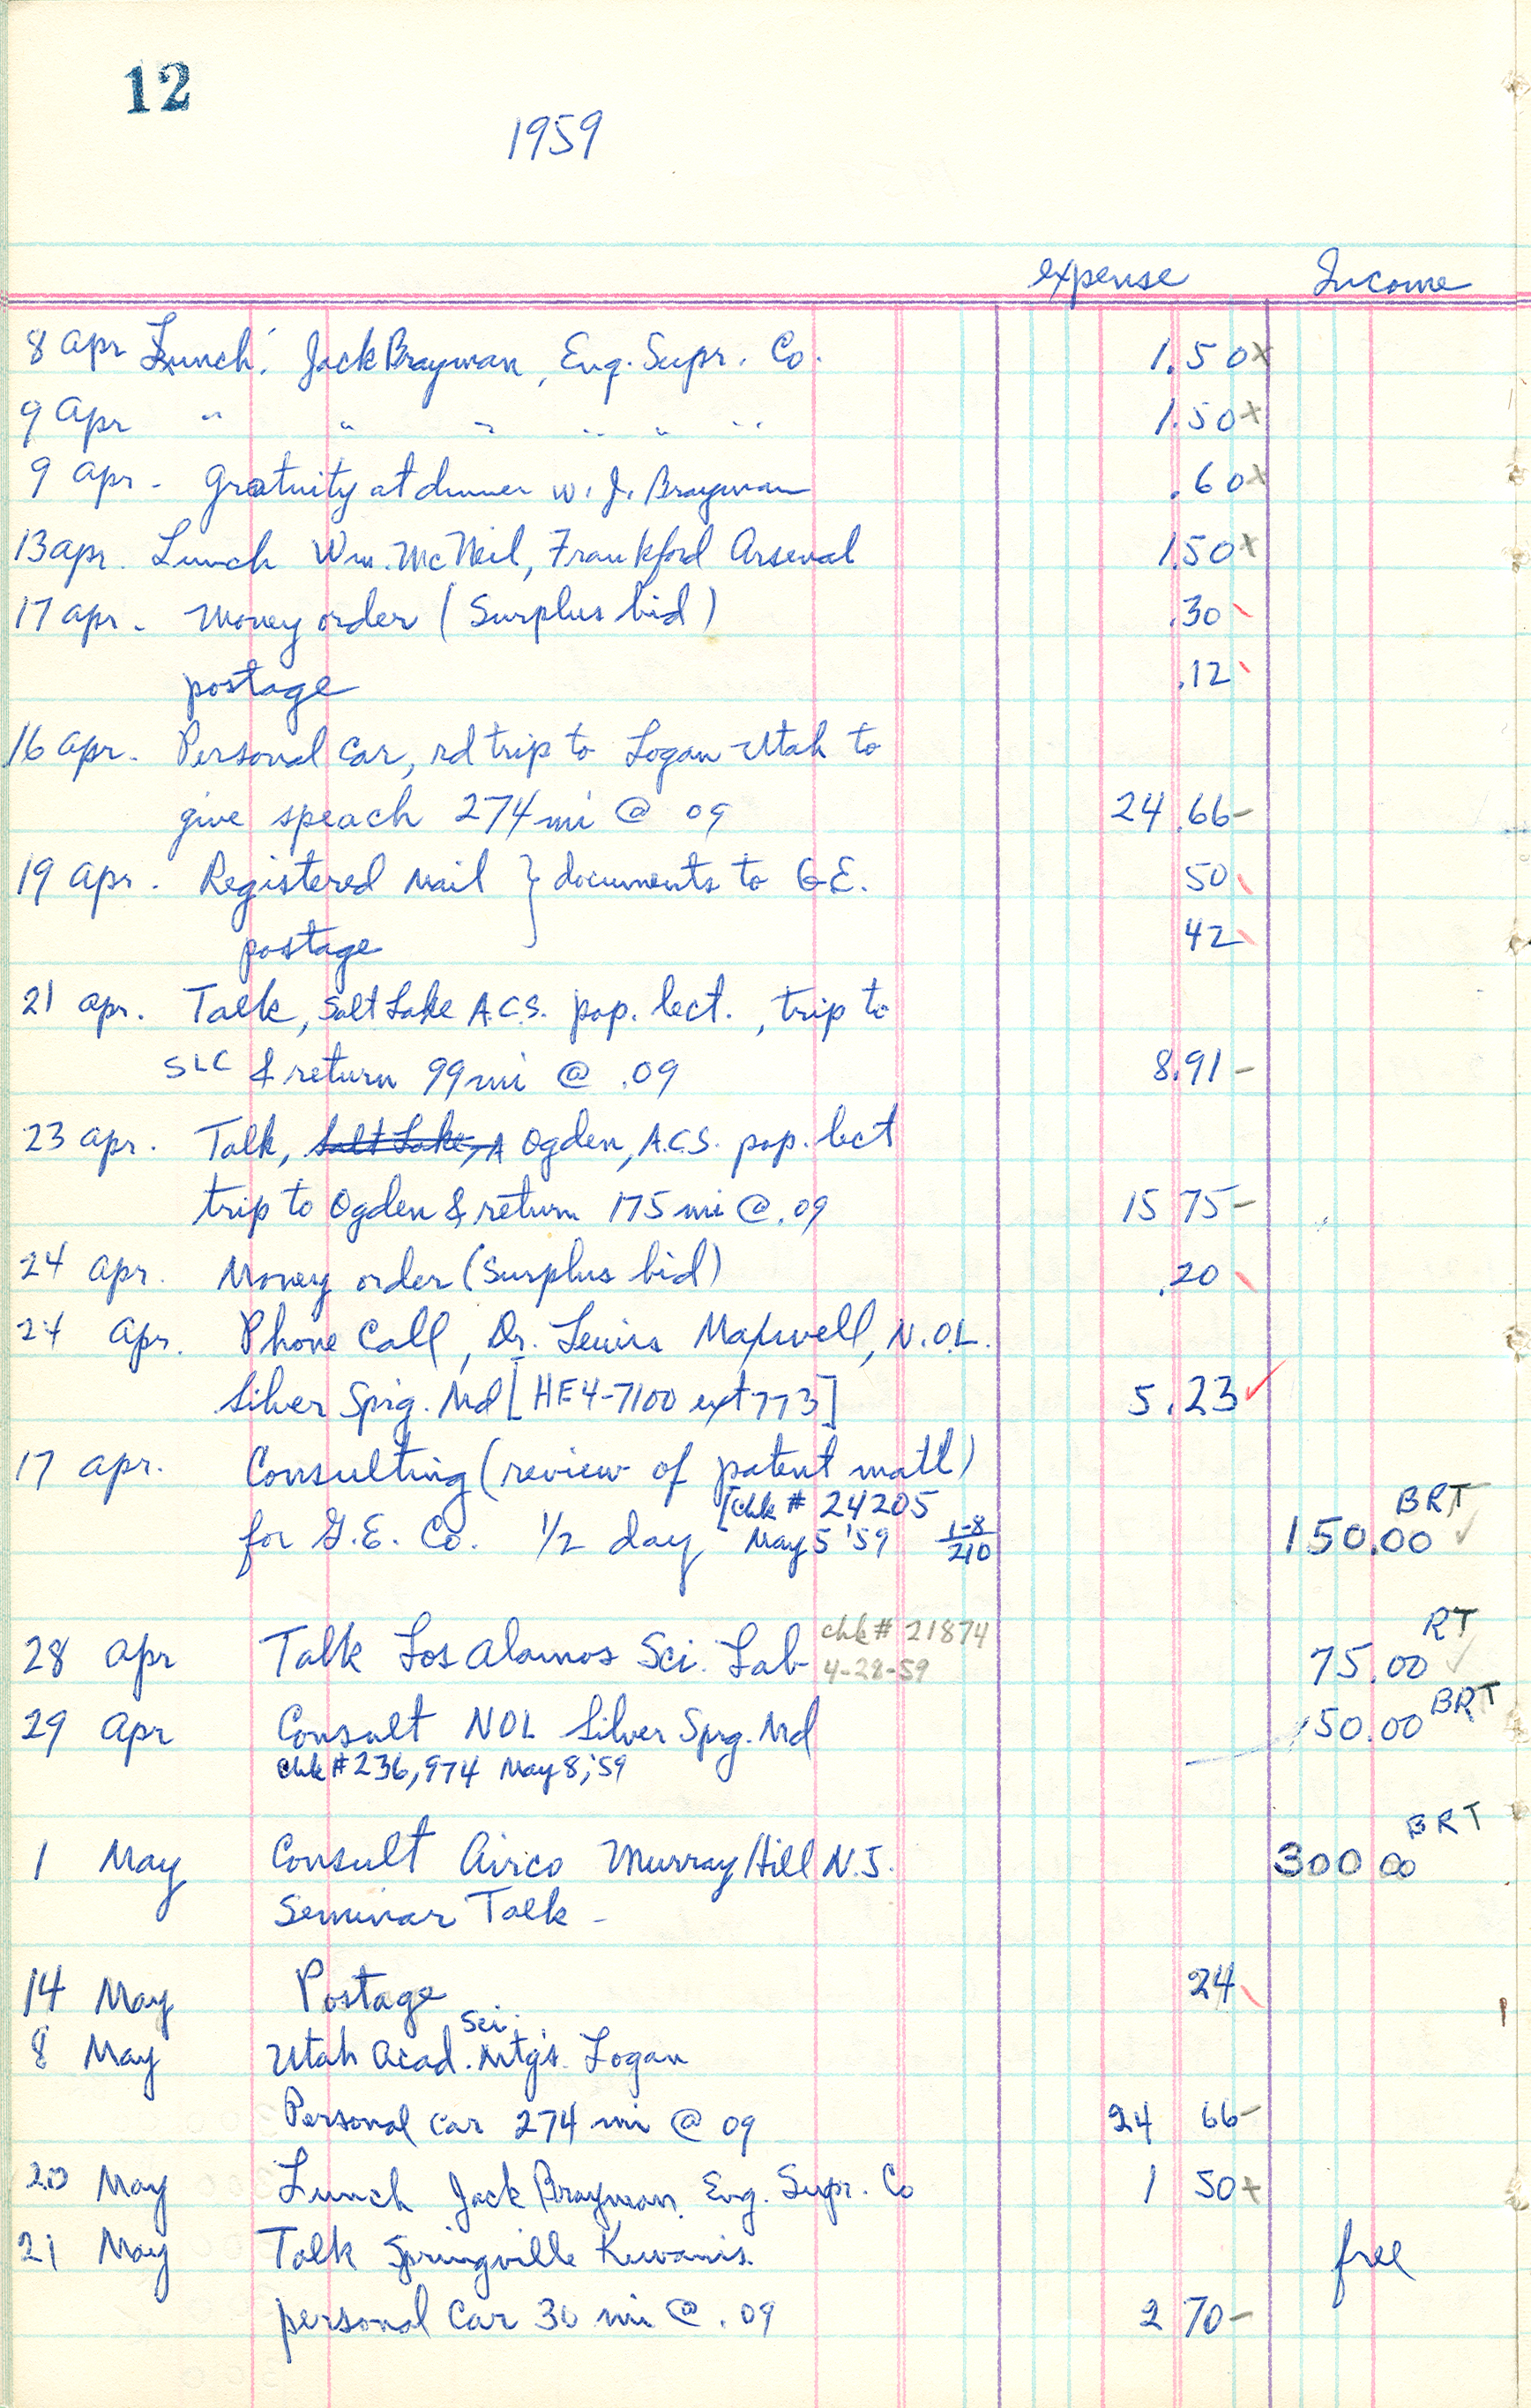 12
1959
expense Income
8 Apr Lunch: Jack Brayman, Eng. Supr. Co. 1.50x
9 Apr " " " " " " 1.50x
9 Apr - Gratuity at dinner w. J. Brayman .60x
13 Apr. Lunch Wm. McNeil, Frankford Arsenal 1.50x
17 Apr - Money order (Surplus bid) .30
postage .12
16 Apr. Personal Car, rd trip to Logan Utah to
give speach 274 mi @ 09 24.66-
19 Apr. Registered Mail } documents to G.E. 50
postage 42
21 Apr. Talk, Salt Lake A.C.S. pop. lect., trip to
SLC & return 99 mi @ .09 8.91-
23 Apr. Talk, Salt Lake, A Ogden, A.C.S. pop. lect
trip to Ogden & return 175 mi @ .09 15 75-
24 Apr. Money order (Surplus bid) .20
24 Apr. Phone Call, Dr. Lewis Maxwell, N.O.L.
Silver Sprg. Md [HE4-7100 ext 773] 5.23✓
17 Apr. Consulting (review of patent matl) BRT
[chk # 24205
for G.E. Co. 1/2 day May 5 '59 1-8/210 150.00 ✓
28 Apr Talk Los Alamos Sci. Lab chk # 21874 RT
4-28-59 75.00 ✓
29 Apr Consult NOL Silver Sprg. Md 150.00 BRT
chk # 236,974 May 8, '59
1 May Consult Airco Murray Hill N.J. 300 00 BRT
Seminar Talk -
14 May Postage 24
8 May Utah Acad. Sci. Mtgs. Logan
Personal car 274 mi @ 09 24 66-
20 May Lunch Jack Brayman, Eng. Supr. Co 1 50x
21 May Talk Springville Kiwanis. free
personal car 30 mi @ .09 2 70-